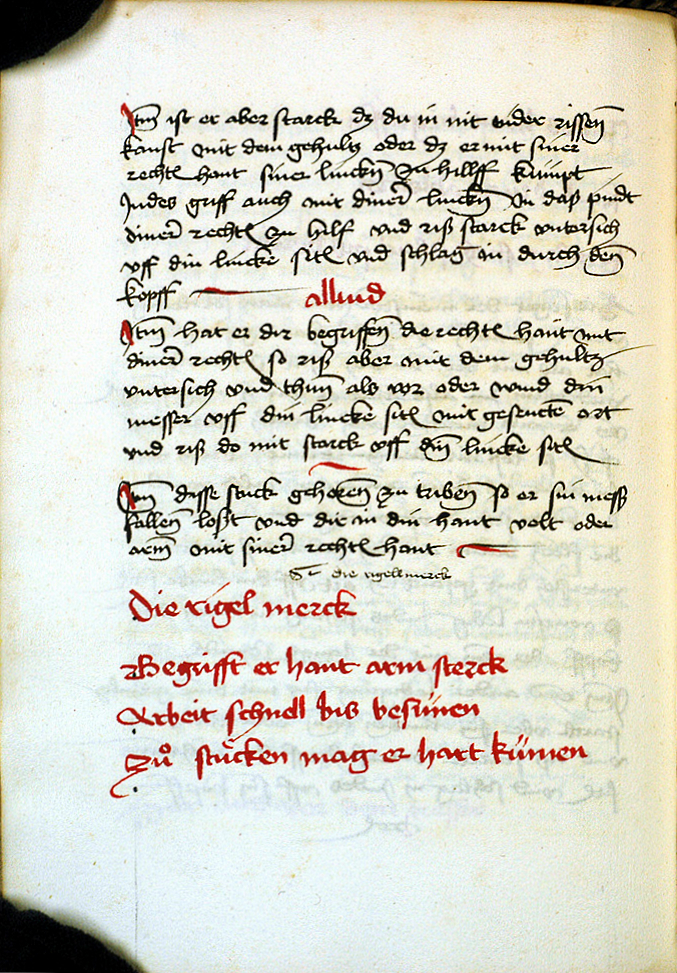 Itm ist er aber starck dz du in nit wider rissen
kanst mit dem gehultz oder dz er mit siner
rechtn hant siner lincken zu hillff kumpt
Indes griff auch mit diner lincken In daß pindt
diner rechtn zu hilf vnd riß starck vntersich
vff din lincke sitn vnd schlag in durch den
kopff
alliud
Itm hat er dir begriffen die rechtn hant mit
diner rechtn so riß aber mit dem gehultz
vntersich vnd thun als vor oder wind din
messer vff din lincke sitn mit gesencktē ort
vnd riß do mit starck vff din lincke sitn
Itm disse stuck gehoren zu triben so er sin mess
fallen loszt vnd dir in din hant velt oder
arm mit siner rechtn hant
die rigel merck
Die rigel merck
Begrifft er hant arm sterck
Arbeit schnell bis besunen
Zů stucken mag er hart kumen